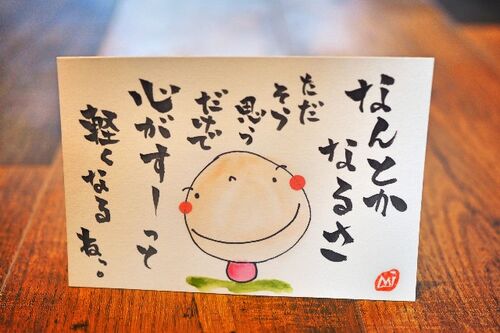 なんとか
なるさ
ただ
そう
思う
だけで
心がすーって
軽くなるねっ。
MI